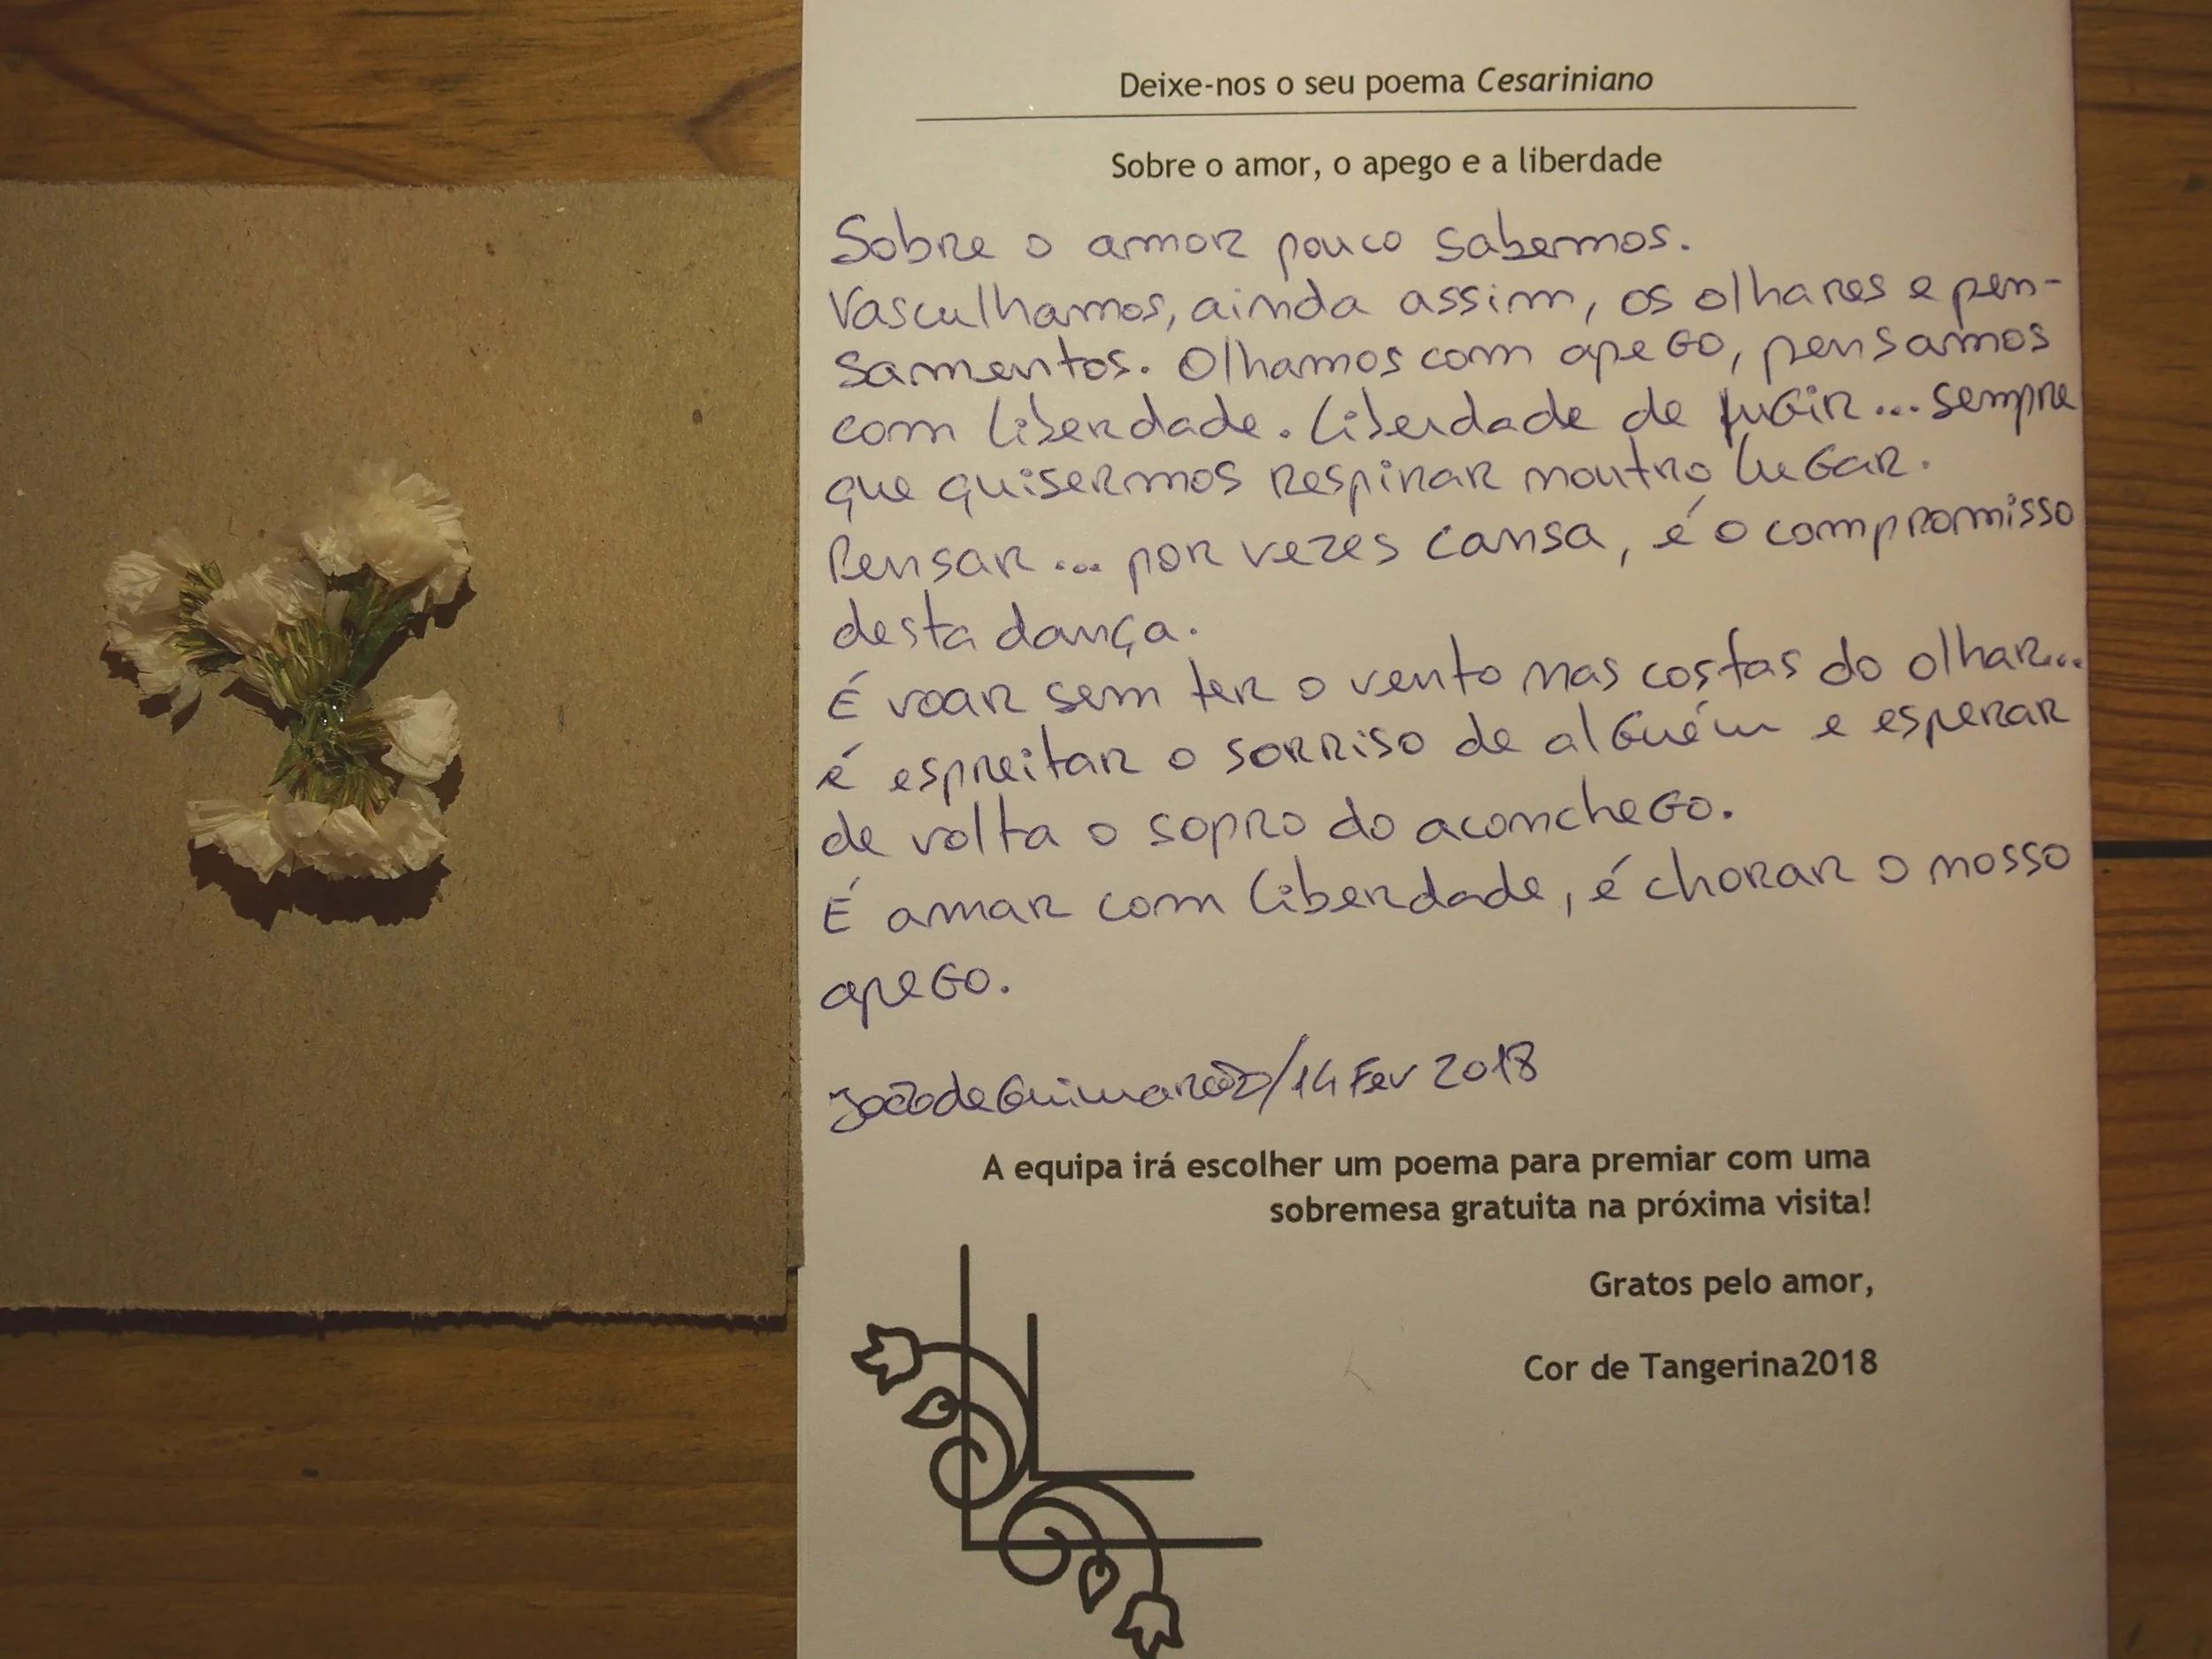 Deixe-nos o seu poema Cesariniano
Sobre o amor, o apego e a liberdade
Sobre o amor pouco sabemos.
Vasculhamos, ainda assim, os olhares e pen-
samentos. Olhamos com apego, pensamos
com liberdade. Liberdade de fugir... sempre
que quisermos respirar noutro lugar.
Pensar... por vezes cansa, é o compromisso
desta dança.
É voar sem ter o vento nas costas do olhar...
é espreitar o sorriso de alguém e esperar
de volta o sopro do aconchego.
É amar com liberdade, é chorar o nosso
apego.
João de Guimarães/14 Fev 2018
A equipa irá escolher um poema para premiar com uma
sobremesa gratuita na próxima visita!
Gratos pelo amor,
Cor de Tangerina2018